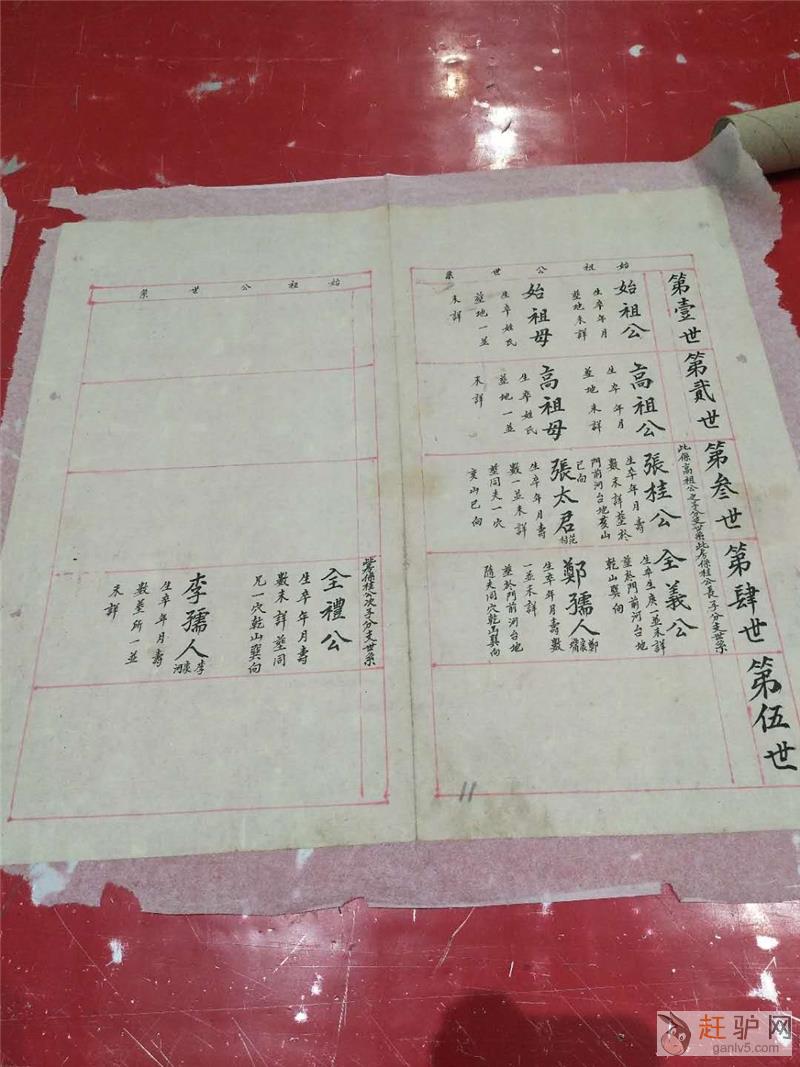 始祖公世系
第壹世
始祖公
生卒年月
塋地未詳
始祖母
生卒姓氏
塋地一並
未詳
第貳世
高祖公
生卒年月
塋地未詳
高祖母
生卒姓氏
塋地一並
未詳
第叁世
此係高祖公之子分支世系
張桂公
生卒年月壽
數未詳塋於
門前河台地亥山
巳向
張太君
生卒年月壽
數一並未詳
塋同夫一穴
亥山巳向
第肆世
此房係桂公長子分支世系
全義公
生卒生庚一並未詳
塋於門前河台地
乾山巽向
鄭孺人
生卒年月壽數
一並未詳
塋於門前河台地
隨夫同穴乾山巽向
第伍世
始祖公世系
此房係桂公次子分支世系
全禮公
生卒年月壽
數未詳塋同
兄一穴乾山巽向
李孺人
李家河
生卒年月壽
數塋所一並
未詳
11
赶驴网
ganlv5.com